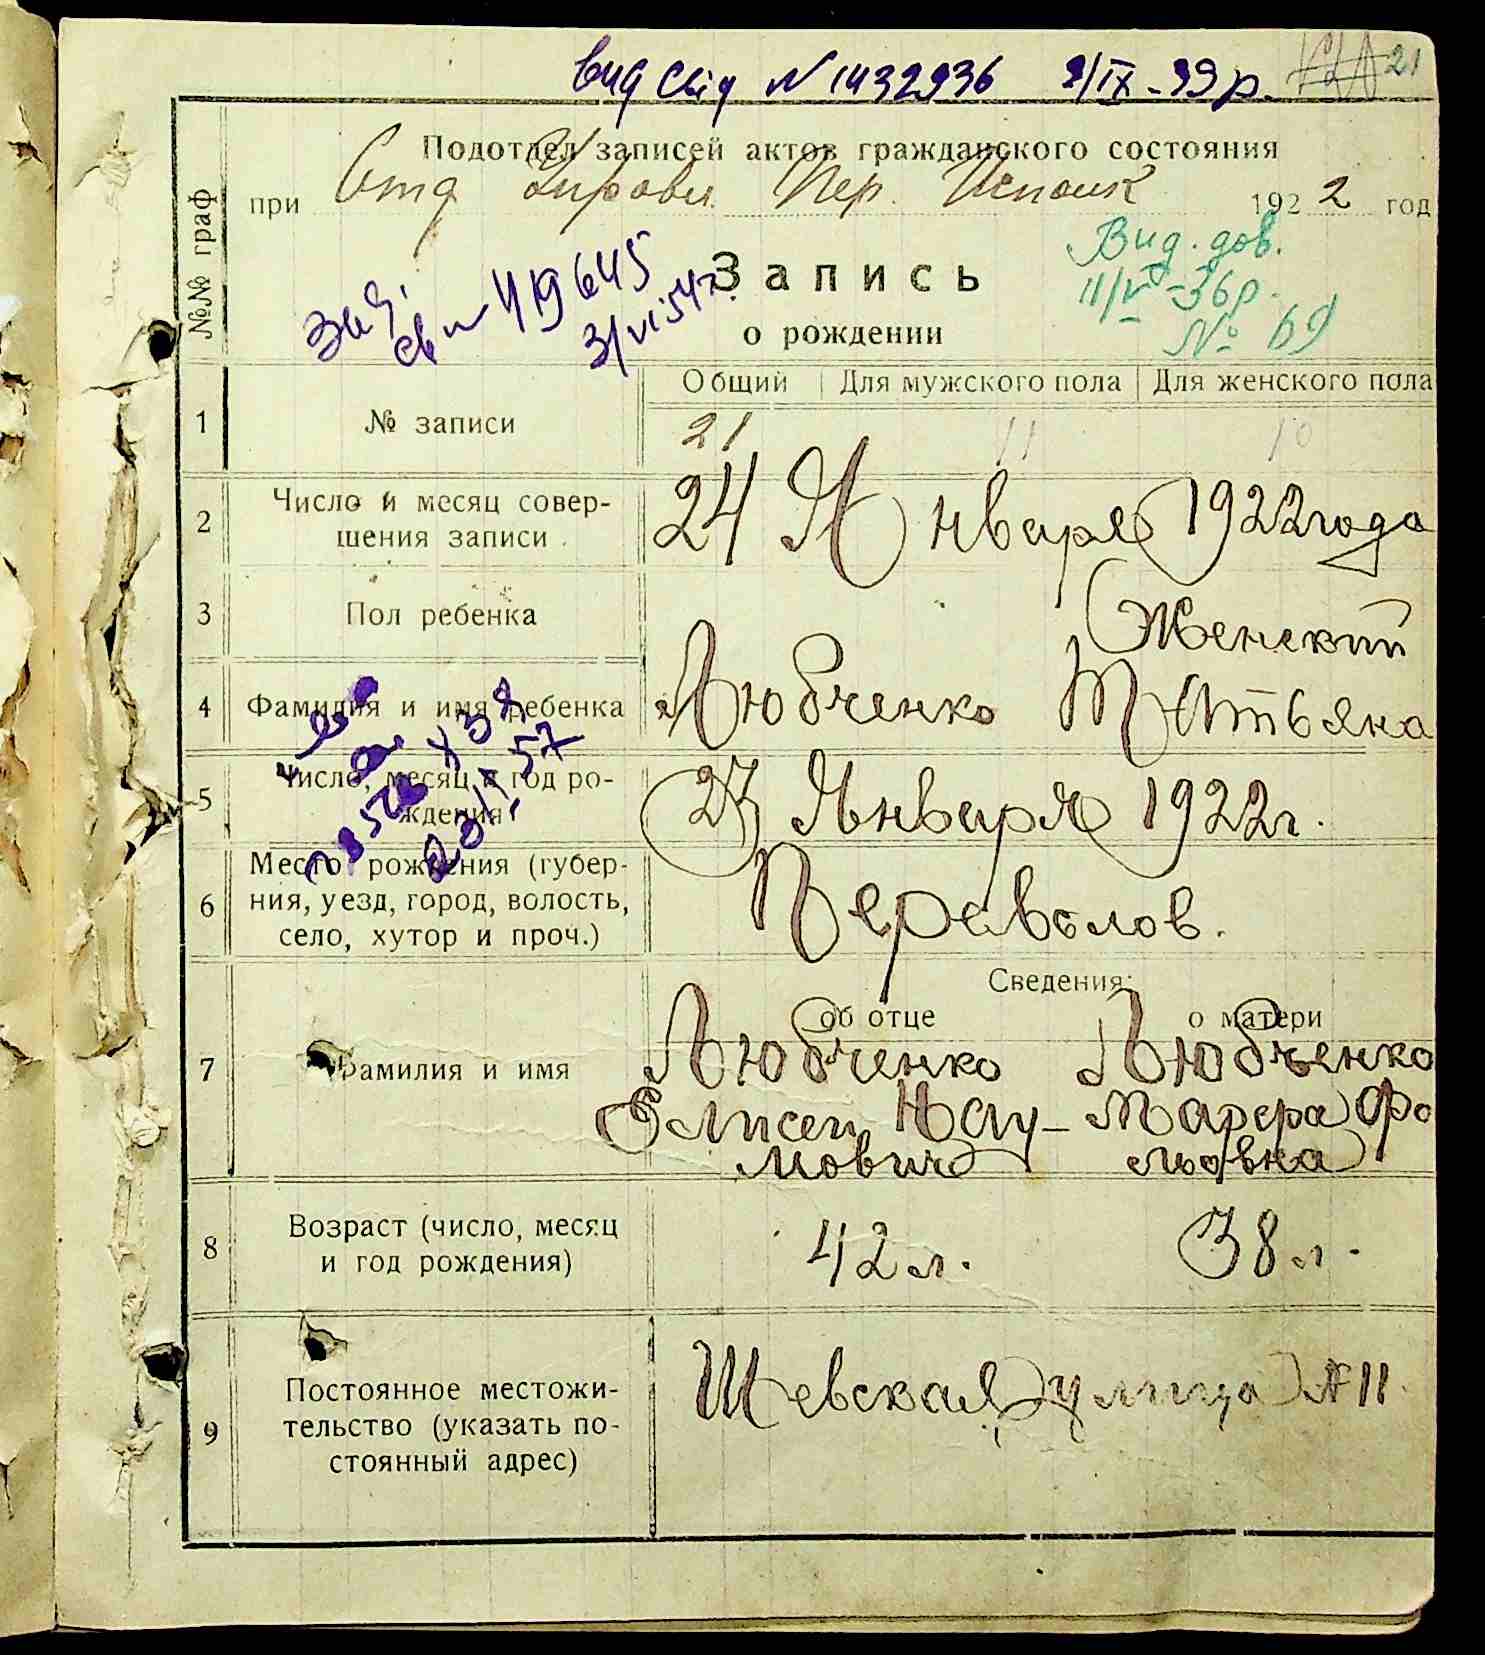 вид свід N 1432936 9/IX-39р. 21
Подотдел записей актов гражданского состояния
при Отд Управл. Пер. Исполк 1922 год
№№ граф
Вид. дов.
11/VI-36р.
№ 69
св N 419645
Запись
о рождении
Общий Для мужского пола Для женского пола
1 № записи 21 11 10
2 Число и месяц совер-
шения записи 24 Января 1922 года
3 Пол ребенка Женский
4 Фамилия и имя ребенка Любченко Татьяна
5 Число, месяц и год ро-
ждения 23 Января 1922 г.
6 Место рождения (губер-
ния, уезд, город, волость,
село, хутор и проч.) Переволоч.
Сведения:
об отце о матери
7 Фамилия и имя Любченко Любченко
Елисей Нау- Марфа
мович
8 Возраст (число, месяц
и год рождения) 42 л. 38 л.
9 Постоянное местожи-
тельство (указать по-
стоянный адрес) улица № 11